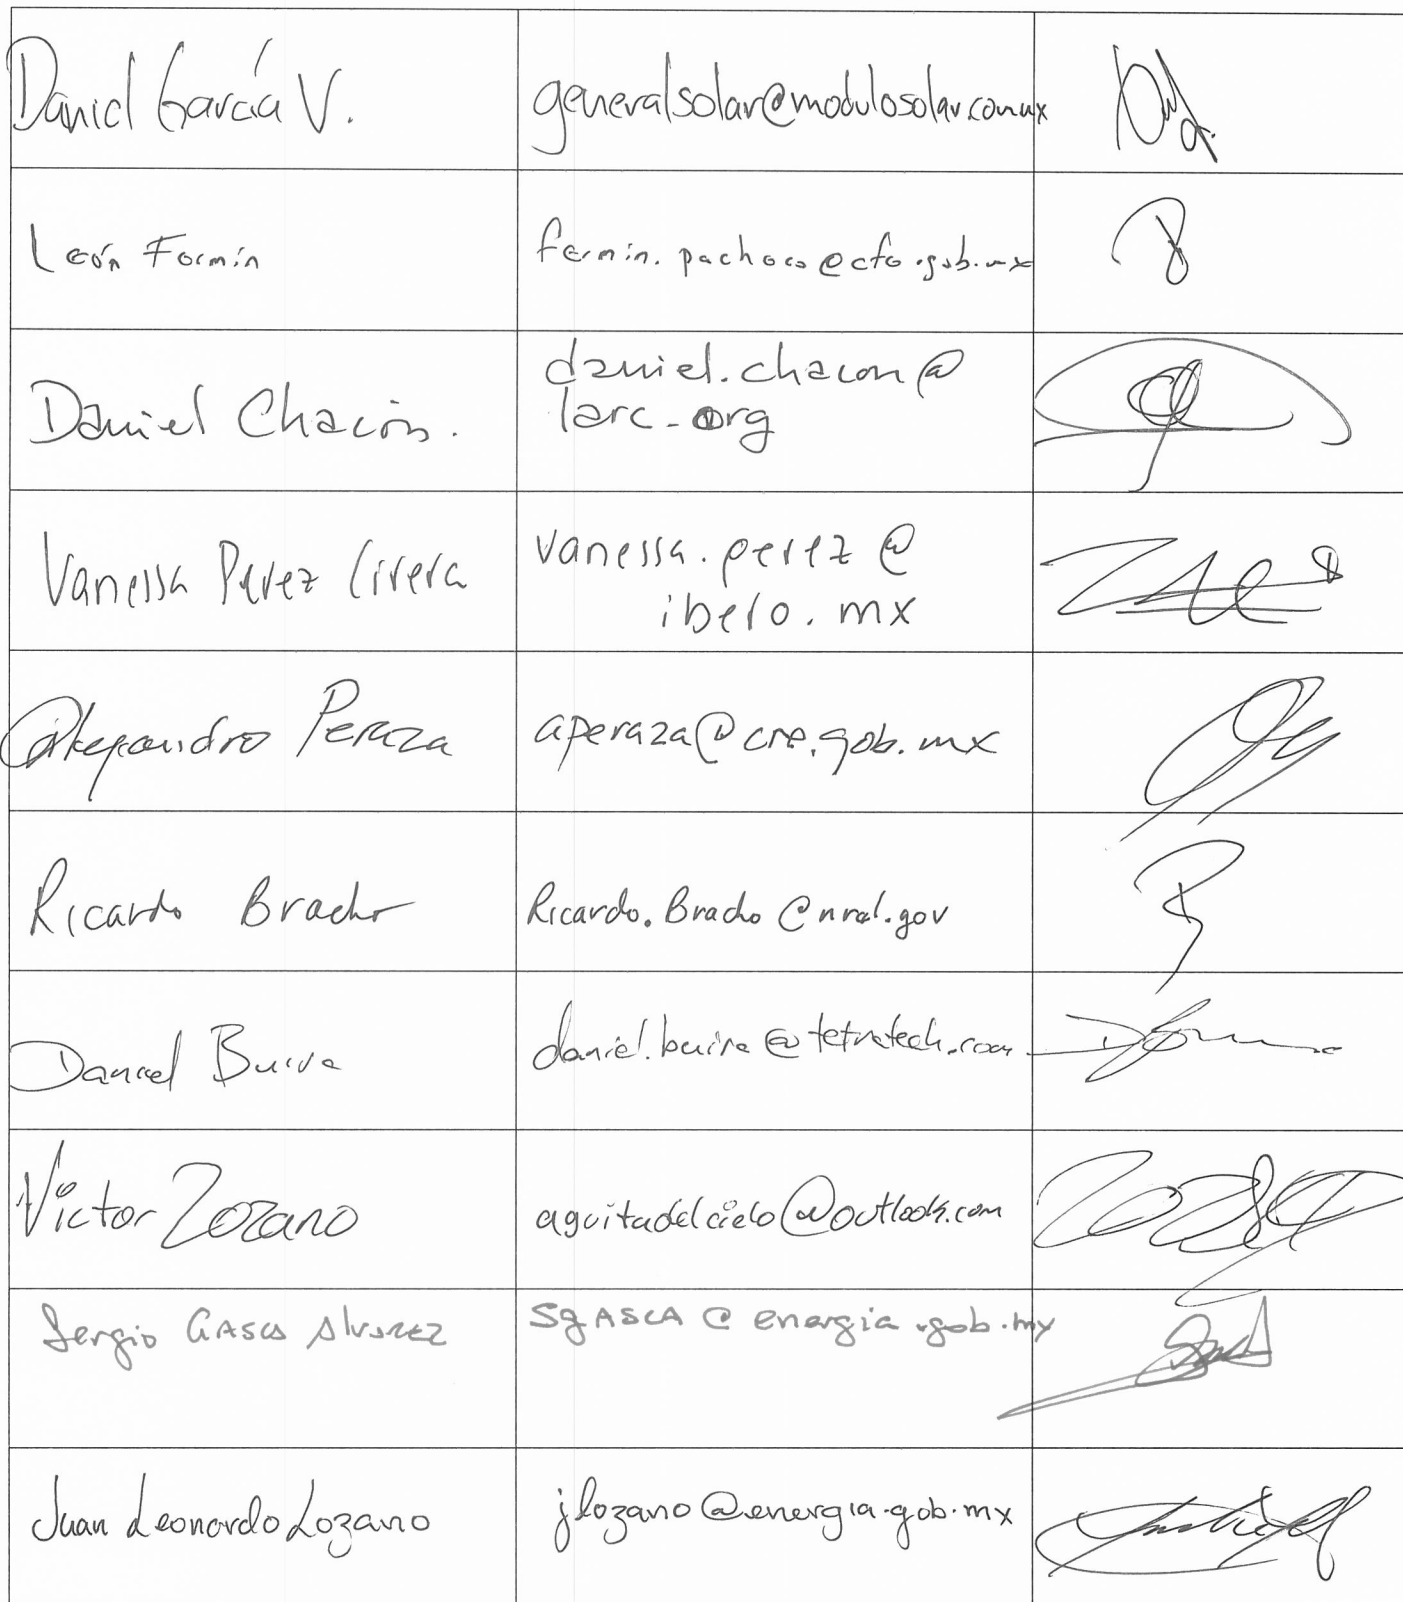 Daniel García V. generalsolar@modulosolar.com.mx
León Fermín fermin.pacheco@cfe.gob.mx
Daniel Chacón. daniel.chacon@
iarc.org
Vanessa Perez Cirera vanessa.perez@
ibero.mx
Alejandro Peraza aperaza@cre.gob.mx
Ricardo Bracho Ricardo.Bracho@nrel.gov
Daniel Buira daniel.buira@tetratech.com
Victor Lozano aguitadelcielo@outlook.com
Sergio GASCA Alvarez SgASCA@energia.gob.mx
Juan Leonardo Lozano jlozano@energia.gob.mx